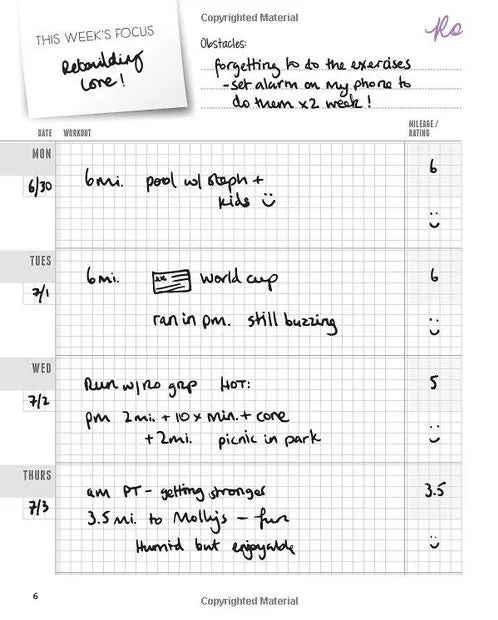 Copyrighted Material
THIS WEEK'S FOCUS
Rebuilding
Core!
Obstacles:
forgetting to do the exercises
- set alarm on my phone to
do them x2 week!
Ro
DATE WORKOUT MILEAGE / RATING
MON
6/30
6mi. pool w/ steph +
kids
6
TUES
7/1
6mi. world cup
ran in pm. still buzzing
6
WED
7/2
Run w/ Ro grp HOT:
pm 2mi. + 10 x min. + core
+ 2mi. picnic in park
5
THURS
7/3
am PT - getting stronger
3.5 mi. to Molly's - fun
Humid but enjoyable
3.5
6
Copyrighted Material